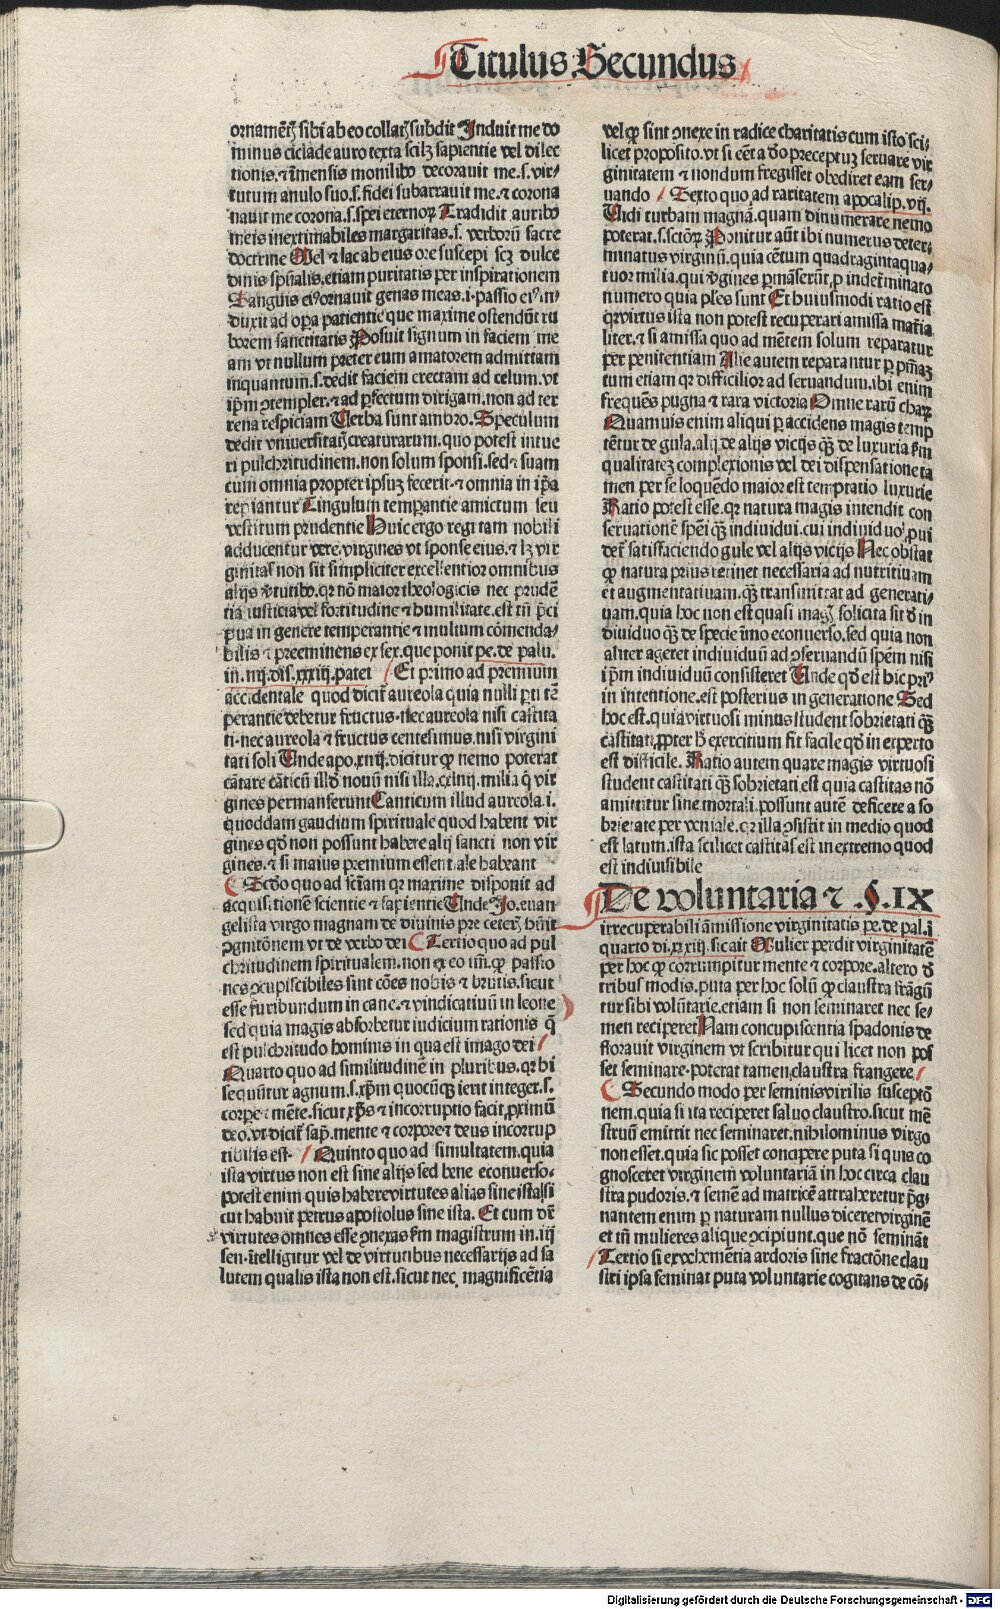 Titulus Secundus
ornamētꝭ sibi ab eo collatꝭ subdit Induit me do
minus ciclade auro texta scilꝫ sapientie vel dilec
tionis.⁊ īmensis monilibꝰ decorauit me.s.vir⸗
tutum anulo suo.s.fidei subarrauit me.⁊ corona
nauit me corona.s.spei eternoꝝ Tradidit auribꝰ
meis inextimabiles margaritas.s. verborū sacre
doctrine Mel ⁊ lac ab eius ore suscepi scꝫ dulce
dinis spūalis.etiam puritatis per inspirationem
Sanguis eiꝰ ornauit genas meas.i.passio eiꝰ in⸗
duxit ad oꝑa patientie que maxime ostendūt ru
borem sanctitatis Posuit signum in faciem me
am vt nullum preter eum amatorem admittam
inquantum.s.dedit faciem erectam ad celum.vt
ip̄m ꝯtempler.⁊ ad ꝑfectum dirigam.non ad ter
rena respiciam Uerba sunt ambro. Speculum
dedit vniuersitatꝭ creaturarum.quo potest intue
ri pulchritudinem.non solum sponsi.sed ⁊ suam
cum omnia propter ipsuꝫ fecerit.⁊ omnia in ip̄a
repiantur Cingulum temꝑantie amictum seu
vestitum prudentie Huic ergo regi tam nobili
adducentur vere.virgines vt sponse eius.⁊ lꝫ vir
ginitas non sit simpliciter excellentior omnibus
alijs v̓tutibꝰ.qr nō maior theologicis nec prudē
tia iusticia vel fortitudine ⁊ humilitate.est tn̄ p̄ci
pua in genere temperantie ⁊ multum cōmenda⸗
bilis ⁊ preeminens ex sex.que ponit pe.de palu.
in.iiij.dis.xxxiij.patet / Et primo ad premium
accidentale quod dicit̃ aureola quia nulli ꝑti tē
perantie debetur fructus.nec aureola nisi castita
ti.nec aureola ⁊ fructus centesimus.nisi virgini
tati soli Unde apo.xiiij.dicitur ꝙ nemo poterat
cātare cāticū illd̓ nouū nisi illa.cxliiij.milia q̇ vir
gines permanserunt Canticum illud aureola.i.
quoddam gaudium spirituale quod habent vir
gines qd̓ non possunt habere alij sancti non vir
gines.⁊ si maius premium essentiale habeant
Scd̓o quo ad sciam qr maxime disponit ad
acquisitionē scientie ⁊ sapientie Unde Jo.euan
gelista virgo magnam de diuinis pre ceterꝭ hūit
ꝯgnitōnem vt de verbo dei Tertio quo ad pul
chritudinem spiritualem.non ex eo tm̄.ꝙ passio
nes ꝯcupiscibiles sint cōes nobis ⁊ brutis.sicut
esse furibundum in cane.⁊ vindicatiuū in leone
sed quia magis absorbetur iudicium rationis q̄
est pulchritudo hominis in qua est imago dei /
Quarto quo ad similitudinē in pluribus.qr hi
sequūtur agnum.s.xp̄m quocūqꝫ ierit integer.s.
corpe ⁊ mēte.sicut xp̄s ⁊ incorruptio facit ꝓximū
deo.vt dicit̃ sap̄.mente ⁊ corpore ⁊ deus incorrup
tibilis est. / Quinto quo ad simultatem.quia
ista virtus non est sine alijs sed bene econuerso⸗
potest enim quis habere virtutes alias sine ista/si
cut habuit petrus apostolus sine ista. Et cum dr̄
virtutes omnes esse ꝯnexas ẜm magistrum in.iij
sen.ītelligitur vel de virtutibus necessarijs ad sa
lutem qualis ista non est.sicut nec magnificētia
vel ꝙ sint ꝯnexe in radice charitatis cum isto sci⸗
licet proposito.vt si eēt a d̓o preceptuꝫ seruare vir
ginitatem ⁊ nondum fregisset obediret eam ser⸗
uando / Sexto quo ad raritatem apocalip.vij.
Uidi turbam magnā.quam dinumerare nemo
poterat.s.sctōꝝ Ponitur aūt ibi numerus deter⸗
minatus virginū.quia cētum quadragintaqua⸗
tuor milia.qui v̓gines ꝑmāserūt.ꝓ indet̓minato
numero quia ples sunt Et huiusmodi ratio est
qr virtus ista non potest recuperari amissa mat̓ia
liter.⁊ si amissa quo ad mētem solum reparatur
per penitentiam Alie autem reparantur ꝑ pn̄iaꝫ
tum etiam qr difficilior ad seruandum.ibi enim
frequēs pugna ⁊ rara victoria Omne rarū charꝝ
Quamuis enim aliqui ꝑ accidens magis temp
tētur de gula.alij de alijs vicijs qꝫ̄ de luxuria ẜm
qualitateꝫ complexionis vel dei dispensatione ta
men per se loquēdo maior est temptatio luxurie
Ratio potest esse.qr natura magis intendit con
seruationē spēi qꝫ̄ indiuidui.cui indiuiduoꝝ ꝓui
det̃ satisfaciendo gule vel alijs vicijs Nec obstat
ꝙ natura prius retinet necessaria ad nutritiuam
et augmentatiuam.qꝫ̄ transmittat ad generati⸗
uam.quia hoc non est quasi magꝭ solicita sit d̓ in
diuiduo qꝫ̄ de specie īmo econuerso.sed quia non
aliter ageret indiuiduū ad ꝯseruandū spēm nisi
ip̄m indiuiduū consisteret Unde qd̓ est hic priꝰ
in intentione.est posterius in generatione Sed
hoc est.quia virtuosi minus student sobrietati qꝫ̄
castitati.ꝓpter h̓ exercitium fit facile qd̓ in experto
est difficile. Ratio autem quare magis virtuosi
student castitati qꝫ̄ sobrietati.est quia castitas nō
amittitur sine mortali.possunt autē deficere a so
brietate per veniale.qr illa ꝯsistit in medio quod
est latum.ista scilicet castitas est in extremo quod
est indiuisibile
De voluntaria ⁊ .§.IX
irrecuperabili āmissione virginitatis pe.de pal.ī
quarto di.xxxiij.sic ait Mulier perdit virginitatē
per hoc ꝙ corrumpitur mente ⁊ corpore.altero d̓
tribus modis.puta per hoc solū ꝙ claustra frāgū
tur sibi volūtarie.etiam si non seminaret nec se⸗
men reciperet Nam concupiscentia spadonis de
florauit virginem vt scribitur qui licet non pos
set seminare.poterat tamen claustra frangere /
Secundo modo per seminis virilis susceptō
nem.quia si ita reciperet saluo claustro.sicut mē
struū emittit nec seminaret.nihilominus virgo
non esset.quia sic posset concipere puta si quis co
gnosceret virginem voluntariā in hoc circa clau
stra pudoris.⁊ semē ad matricē attraheretur p̄g⸗
nantem enim ꝑ naturam nullus diceret virginē
et tn̄ mulieres alique ꝯcipiunt.que nō semināt
Tertio si ex vehemētia ardoris sine fractōne clau
stri ipsa seminat puta voluntarie cogitans de cō⸗
Digitalisierung gefördert durch die Deutsche Forschungsgemeinschaft - DFG